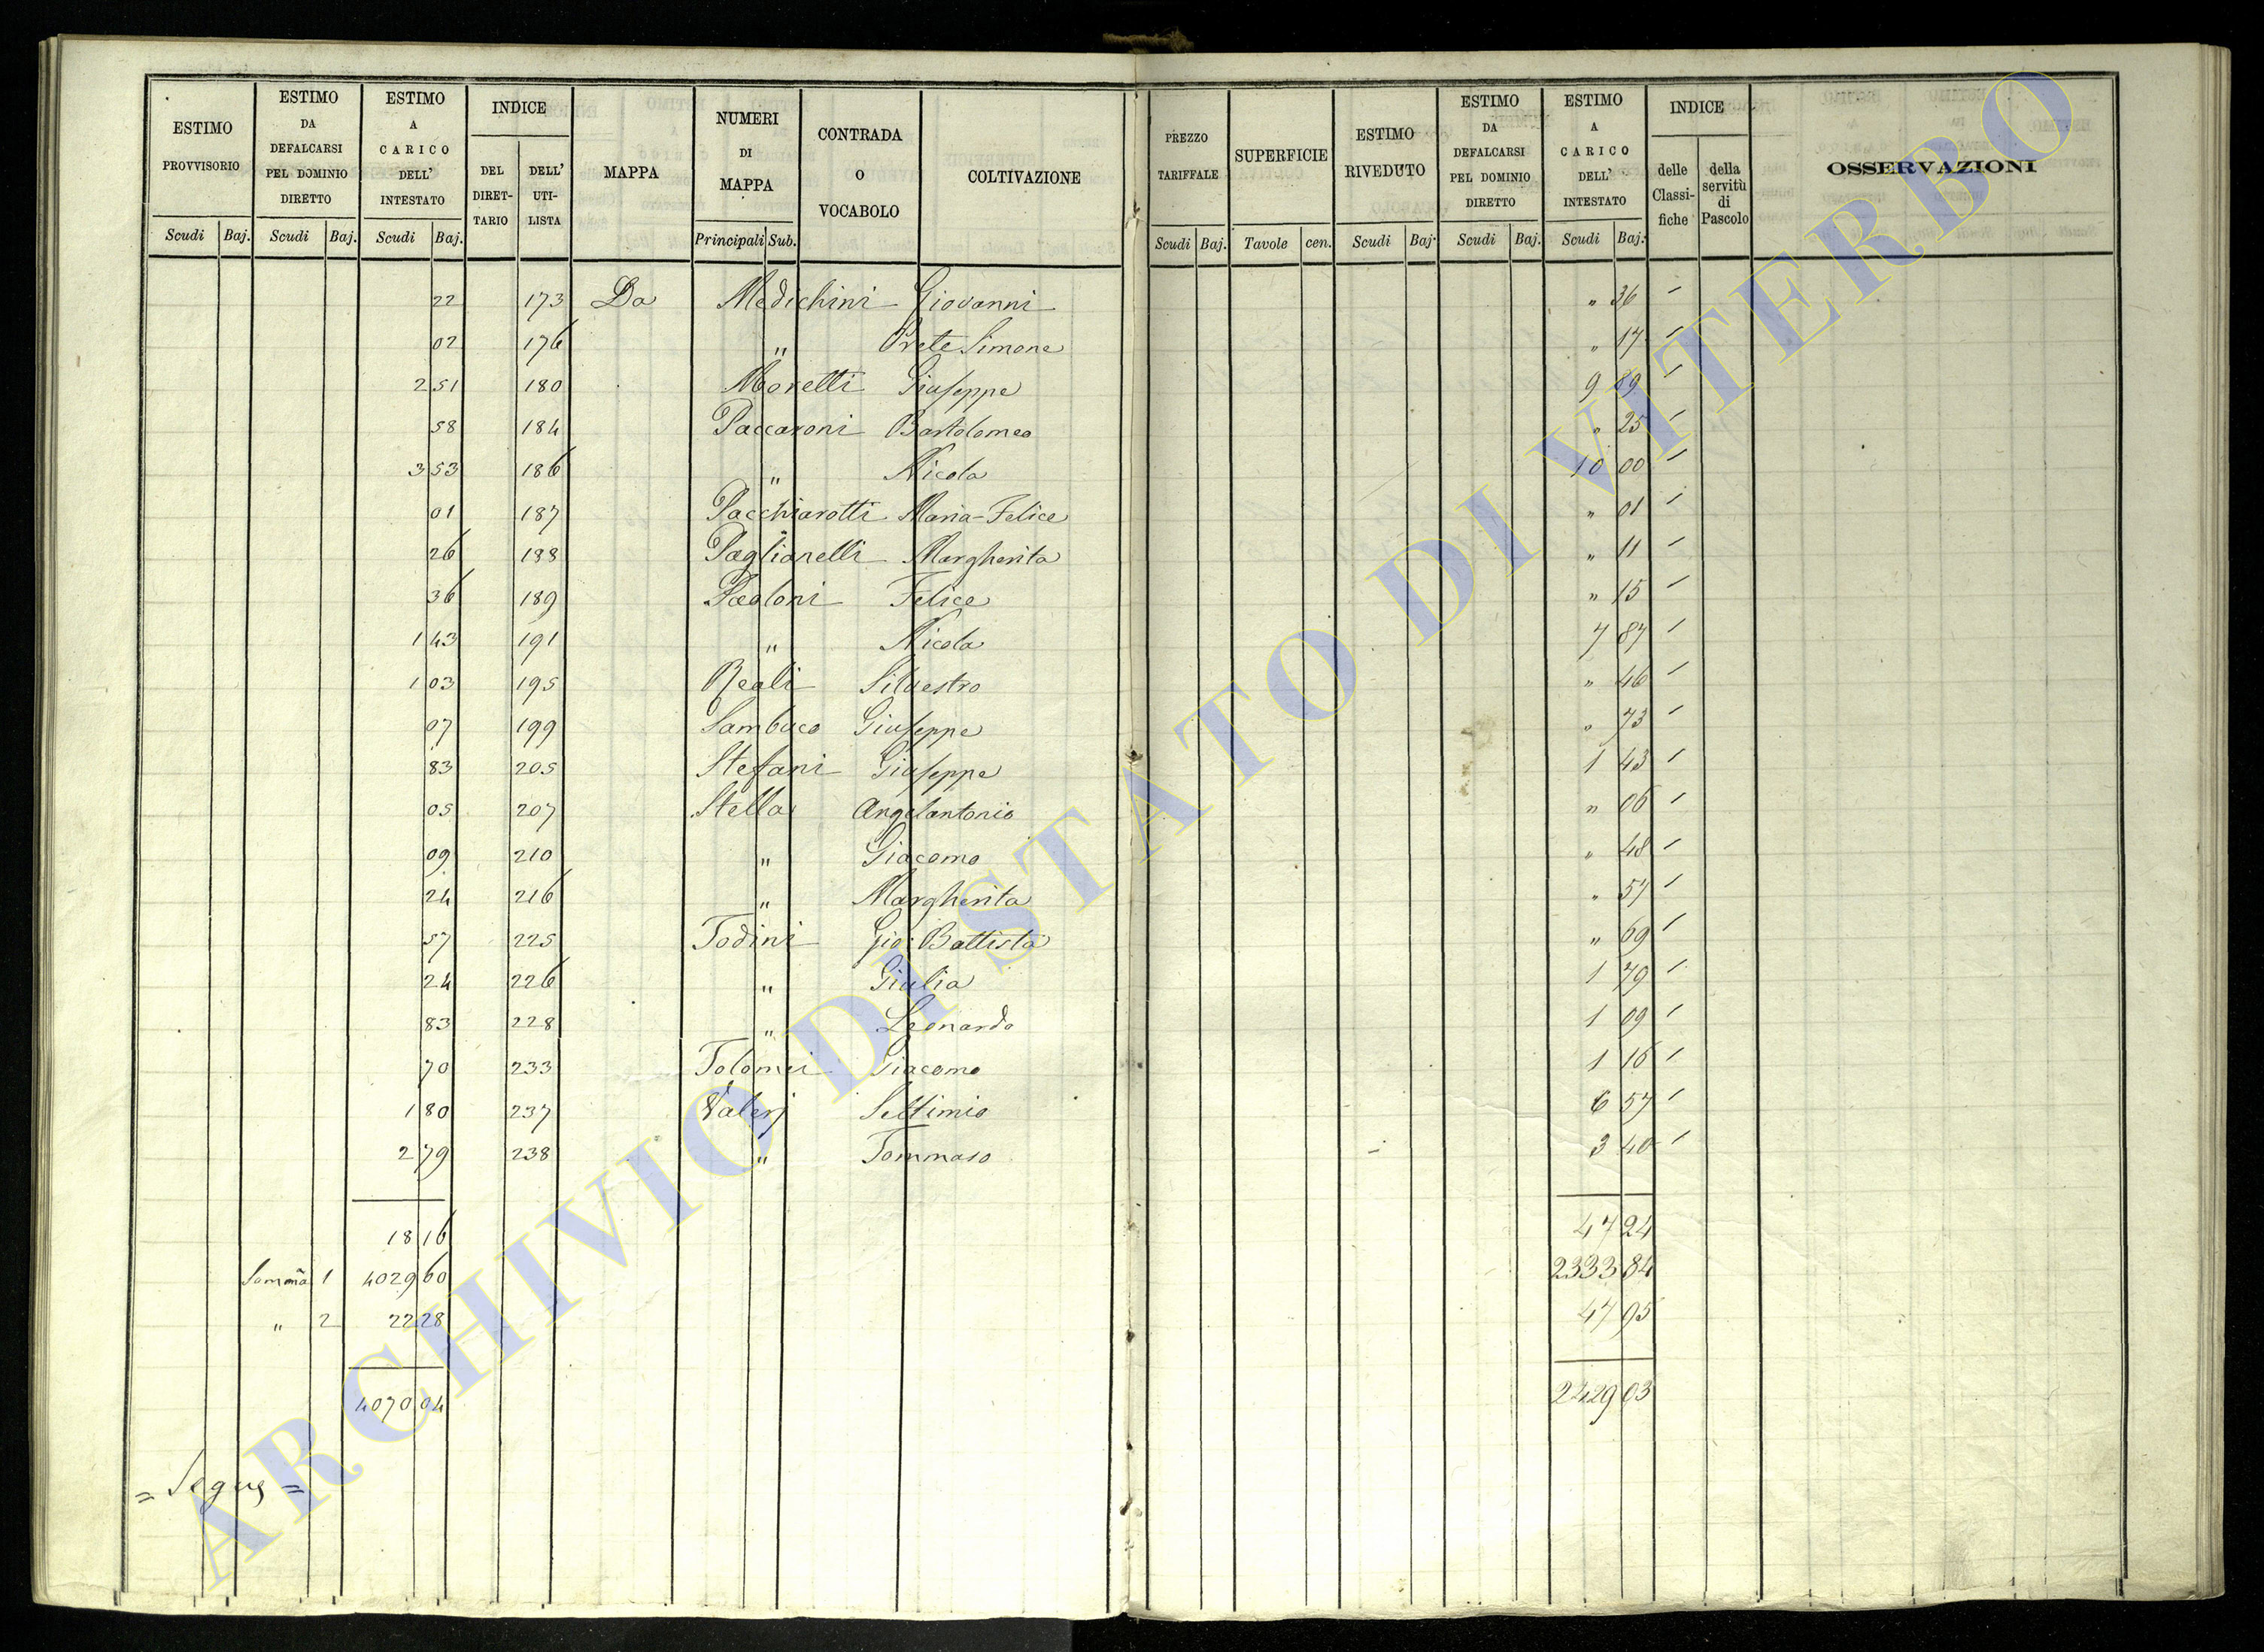 ESTIMO PROVVISORIO Scudi Baj. ESTIMO DA DEFALCARSI PEL DOMINIO DIRETTO Scudi Baj. ESTIMO A CARICO DELL' INTESTATO Scudi Baj. INDICE DEL DIRETTARIO DELL' UTILISTA MAPPA NUMERI DI MAPPA Principali Sub. CONTRADA O VOCABOLO COLTIVAZIONE PREZZO TARIFFALE Scudi Baj. SUPERFICIE Tavole cen. ESTIMO RIVEDUTO Scudi Baj. ESTIMO DA DEFALCARSI PEL DOMINIO DIRETTO Scudi Baj. ESTIMO A CARICO DELL' INTESTATO Scudi Baj. INDICE delle Classifiche della servitù di Pascolo OSSERVAZIONI
22 173 Da Medichini Giovanni " 36
02 176 " Prete Simone " 17
2 51 180 Moretti Giuseppe 9 89
58 184 Paccaroni Bartolomeo " 25
3 53 186 " Nicola 10 00
01 187 Pacchiarotti Maria-Felice " 01
26 188 Paglianelli Margherita " 11
36 189 Paoloni Felice " 15
1 43 191 " Nicola 7 87
1 03 195 Reali Silvestro " 46
07 199 Sambuco Giuseppe " 73
83 205 Stefani Giuseppe 1 43
05 207 Stella Angelantonio " 06
09 210 " Giacomo " 48
24 216 " Margherita " 57
57 225 Todini Gio: Battista " 69
24 226 " Giulia 1 79
83 228 " Leonardo 1 09
70 233 Tolomei Giacomo 1 16
1 80 237 Valerj Settimio 6 57
2 79 238 " Tommaso 3 40
18 16 47 24
Somma 1 4029 60 2333 84
" 2 22 28 47 95
4070 04 2429 03
= Segue =
ARCHIVIO DI STATO DI VITERBO